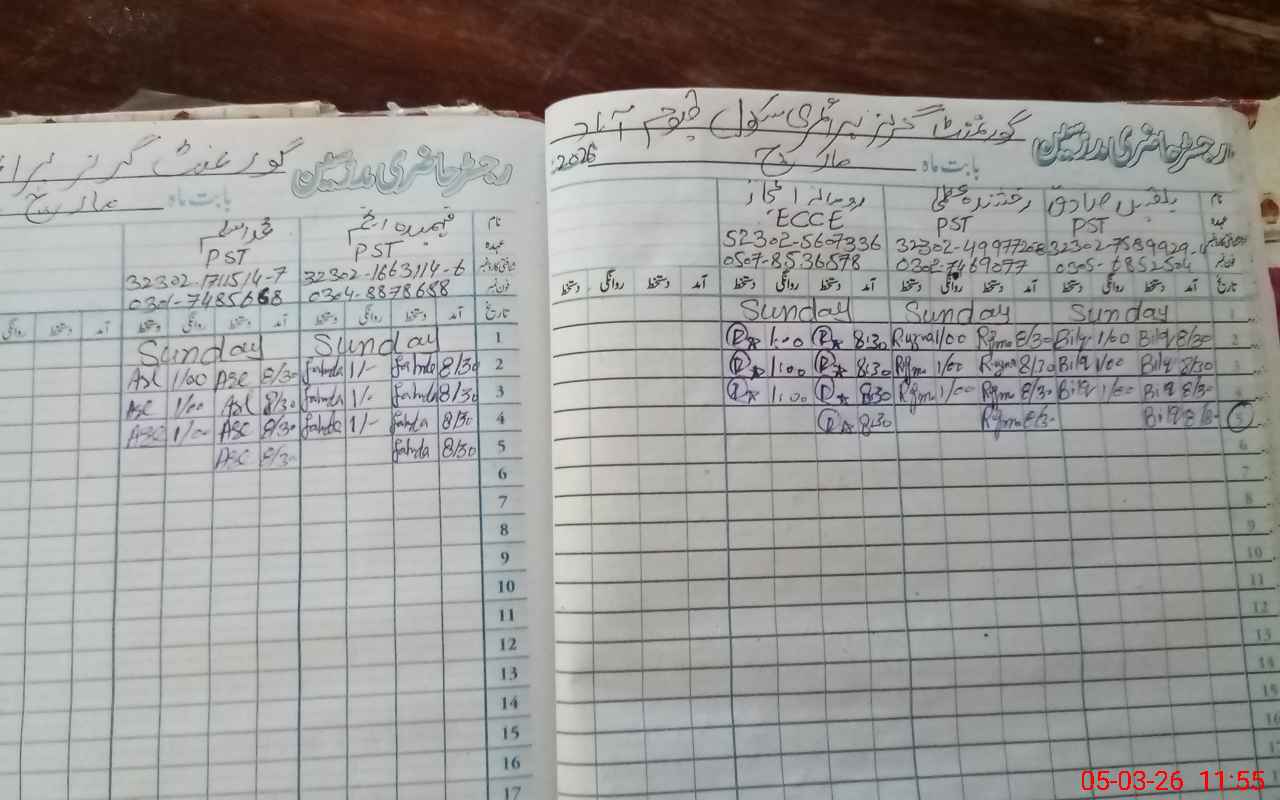 گورنمنٹ گرلز پرائمری سکول
رجسٹر حاضری مدرسین
بابت ماہ مارچ 2026
نام بلقیس صادق رخشندہ عظمیٰ رومانہ اعجاز
عہدہ PST PST ECCE
32302-7589929-4 32302-4997726-8 52302-5607336
فون نمبر 0305-6852504 0302-7469077 0307-8536578
تاریخ آمد دستخط روانگی دستخط آمد دستخط روانگی دستخط آمد دستخط روانگی دستخط آمد دستخط روانگی دستخط
1 Sunday Sunday Sunday
2 8/30 Bilq 1/00 Bilq 8/30 1/00 8:30 1:00
3 8/30 Bilq 1/00 Bilq 8/30 1/00 8:30 1:00
4 8/30 Bilq 1/00 Bilq 8/30 1/00 8:30 1:00
5 8/30 Bilq 8/30 8:30
6
7
8
9
10
11
12
13
14
15
16
گورنمنٹ گرلز
رجسٹر حاضری مدرسین
بابت ماہ مارچ
نام فہمیدہ انجم محمد اسلم
عہدہ PST PST
32302-1663114-6 32302-1711514-7
فون نمبر 0304-8878688 0301-7485668
تاریخ آمد دستخط روانگی دستخط آمد دستخط روانگی دستخط آمد دستخط روانگی
1 Sunday Sunday
2 8/30 fahmda 1/- fahmda 8/30 ASL 1/00 ASL
3 8/30 fahmda 1/- fahmda 8/30 ASL 1/00 ASL
4 8/30 fahmda 1/- fahmda 8/30 ASL 1/00 ASL
5 8/30 fahmda 8/30 ASL
6
7
8
9
10
11
12
13
14
15
16
17
05-03-26 11:55